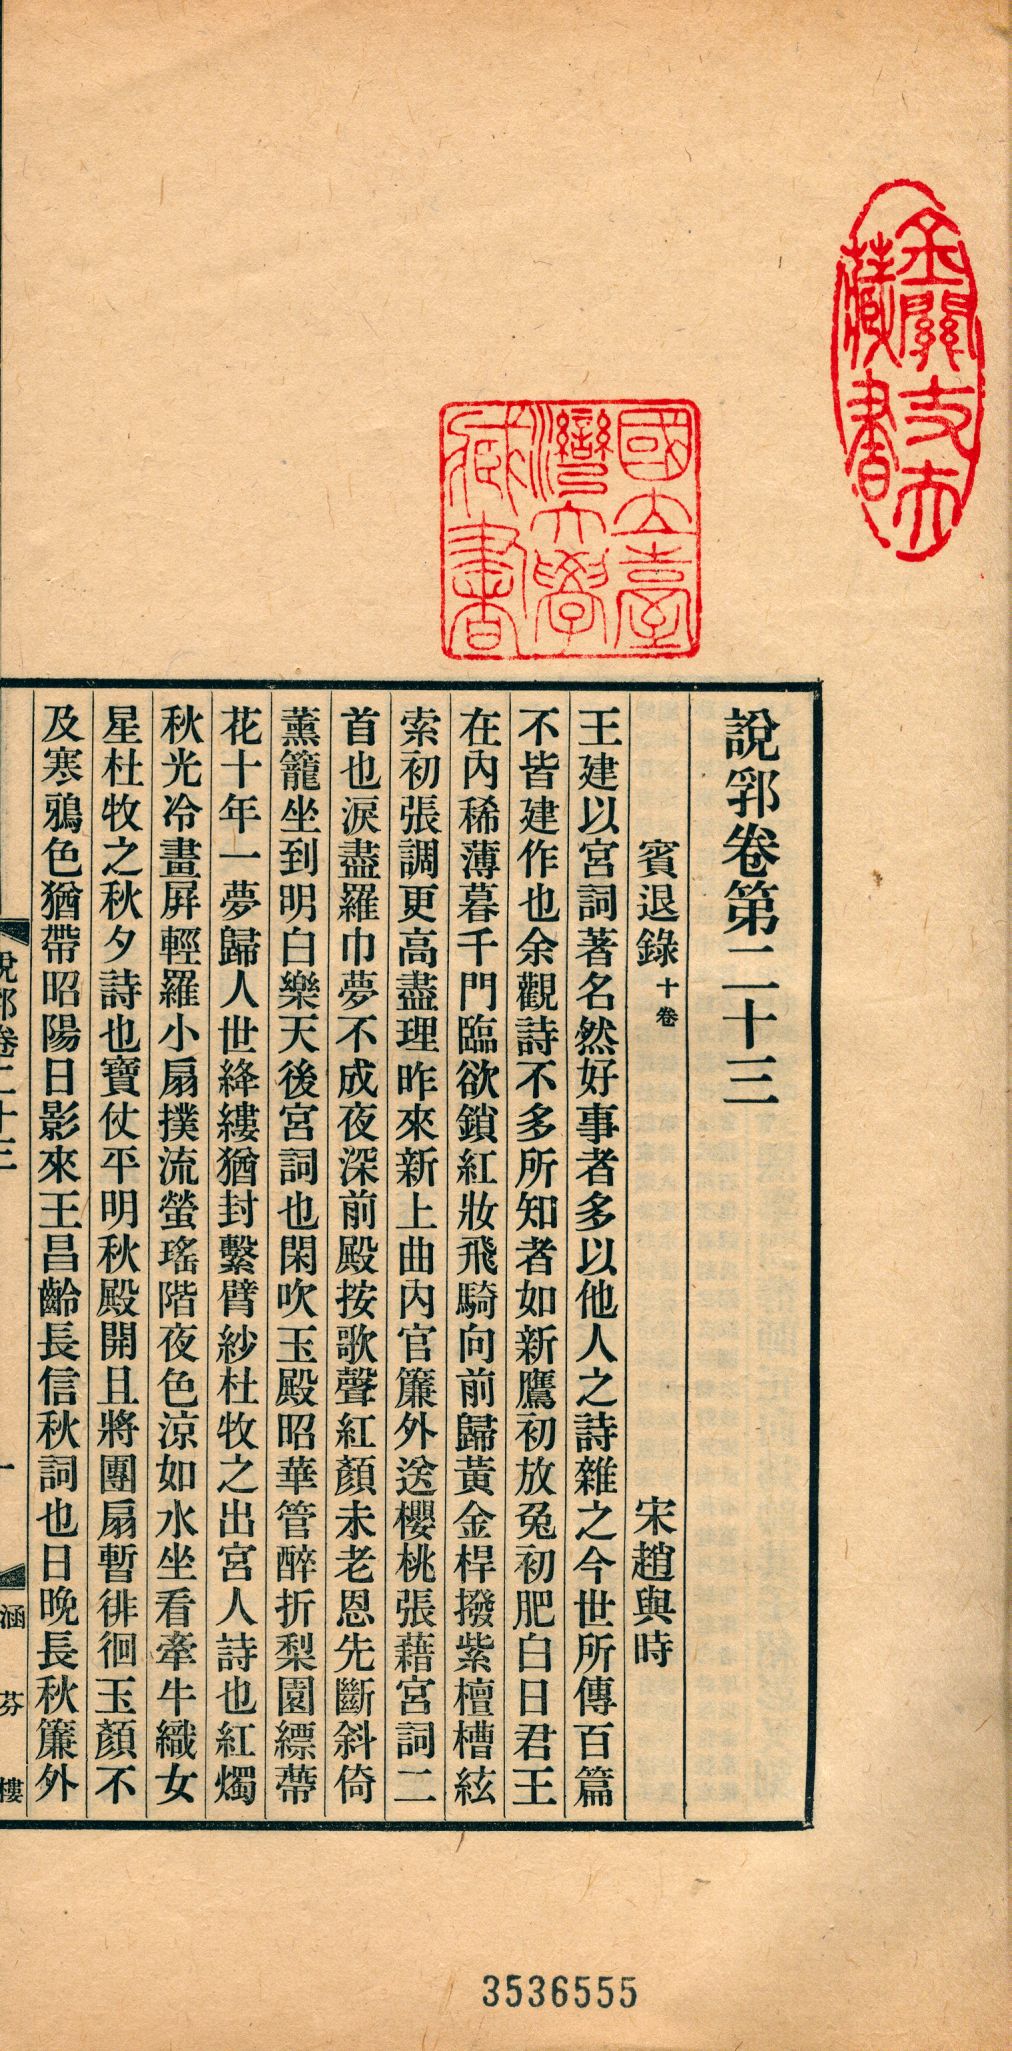 金關丈夫
藏書
國立臺
灣大學
藏書
說郛卷第二十三
賓退錄十卷 宋趙與時
王建以宮詞著名然好事者多以他人之詩雜之今世所傳百篇
不皆建作也余觀詩不多所知者如新鷹初放兔初肥白日君王
在內稀薄暮千門臨欲鎖紅妝飛騎向前歸黃金桿撥紫檀槽絃
索初張調更高盡理昨來新上曲內官簾外送櫻桃張藉宮詞二
首也淚盡羅巾夢不成夜深前殿按歌聲紅顏未老恩先斷斜倚
薰籠坐到明白樂天後宮詞也閑吹玉殿昭華管醉折梨園縹蔕
花十年一夢歸人世絳縷猶封繫臂紗杜牧之出宮人詩也紅燭
秋光冷畫屏輕羅小扇撲流螢瑤階夜色涼如水坐看牽牛織女
星杜牧之秋夕詩也寶仗平明秋殿開且將團扇暫徘徊玉顏不
及寒鴉色猶帶昭陽日影來王昌齡長信秋詞也日晚長秋簾外
說郛卷二十三 一 涵芬樓
3536555